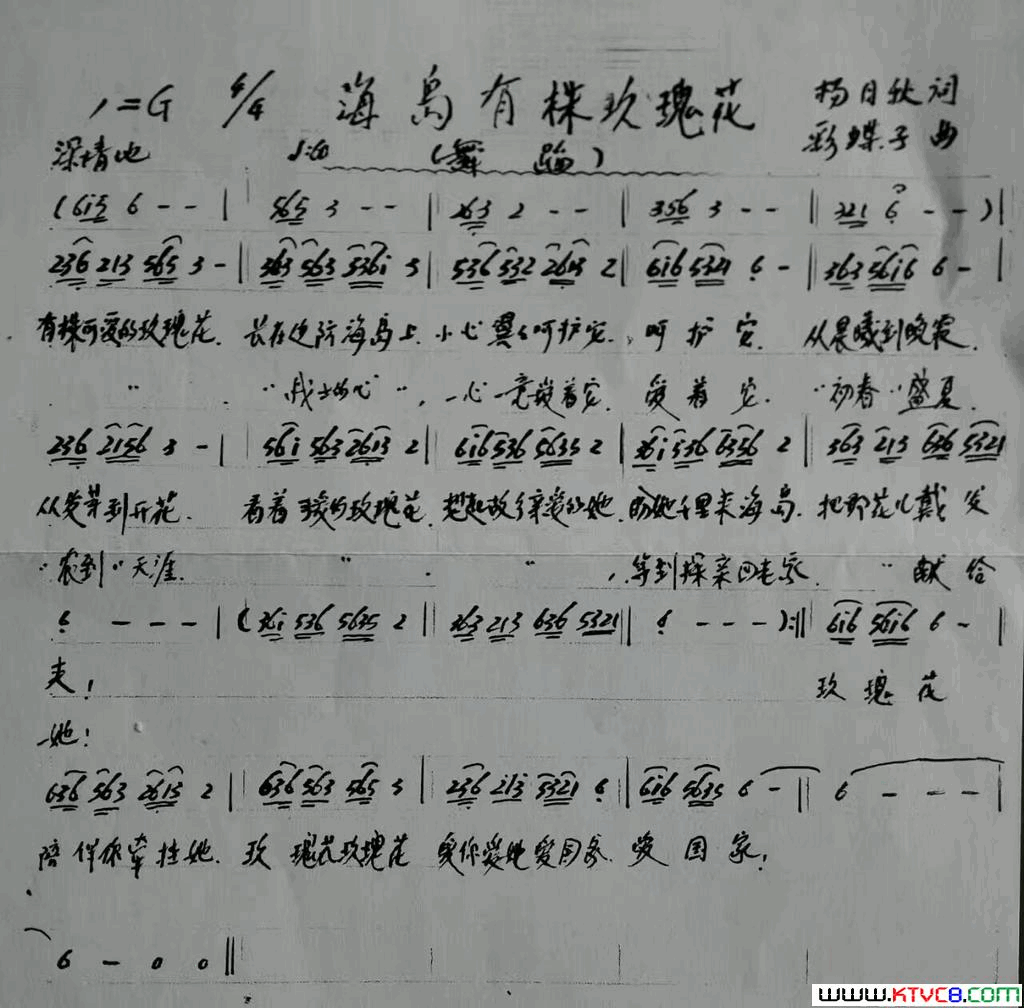 1=G 4/4 海岛有株玫瑰花 杨日秋词
深情地 (舞蹈) 彩蝶子曲
(615 6 - - | 565 3 - - | 263 2 - - | 356 3 - - | 321 6 - -)|
236 213 565 3 - | 363 563 536i 3 | 536 532 2613 2 | 616 5321 6 - | 363 5616 6 - |
有株可爱的玫瑰花. 长在边防海岛上. 小心翼翼呵护它, 呵护它. 从晨曦到晚霞.
" "战士的心", 一心一意 着它. 爱着它. "初春"盛夏.
236 2156 3 - | 561 563 2613 2 | 616 536 5635 2 | 361 536 6356 2 | 363 213 636 5321
从发芽到开花. 看着 的玫瑰花. 想起故乡亲爱的她. 盼她千里来海岛. 把那花儿戴发
" 到"天涯. " " , 等到探亲回老家. " 献给
6 - - - | (361 536 5635 2 | 363 213 636 5321 | 6 - - -):| 616 5616 6 - |
夹! 玫瑰花
她!
636 563 2613 2 | 636 563 565 3 | 236 213 5321 6 | 616 5635 6 - | 6 - - - |
陪伴你牵挂她. 玫瑰花玫瑰花 爱你爱她爱国家. 爱国家!
6 - 0 0 ||
www.KTVC8.com